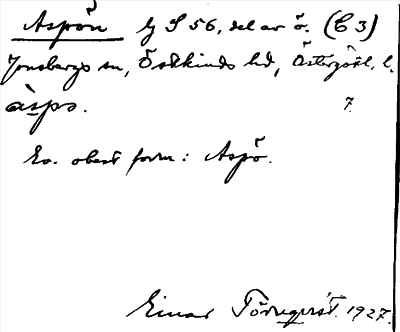 Aspön by S 56, del av ö. (C 3)
Jonsbergs sn, Östkinds hd, Östergötl. l.
àspə. 7.
Ev. obest form: Aspö.
Einar Törnqvist. 1927.